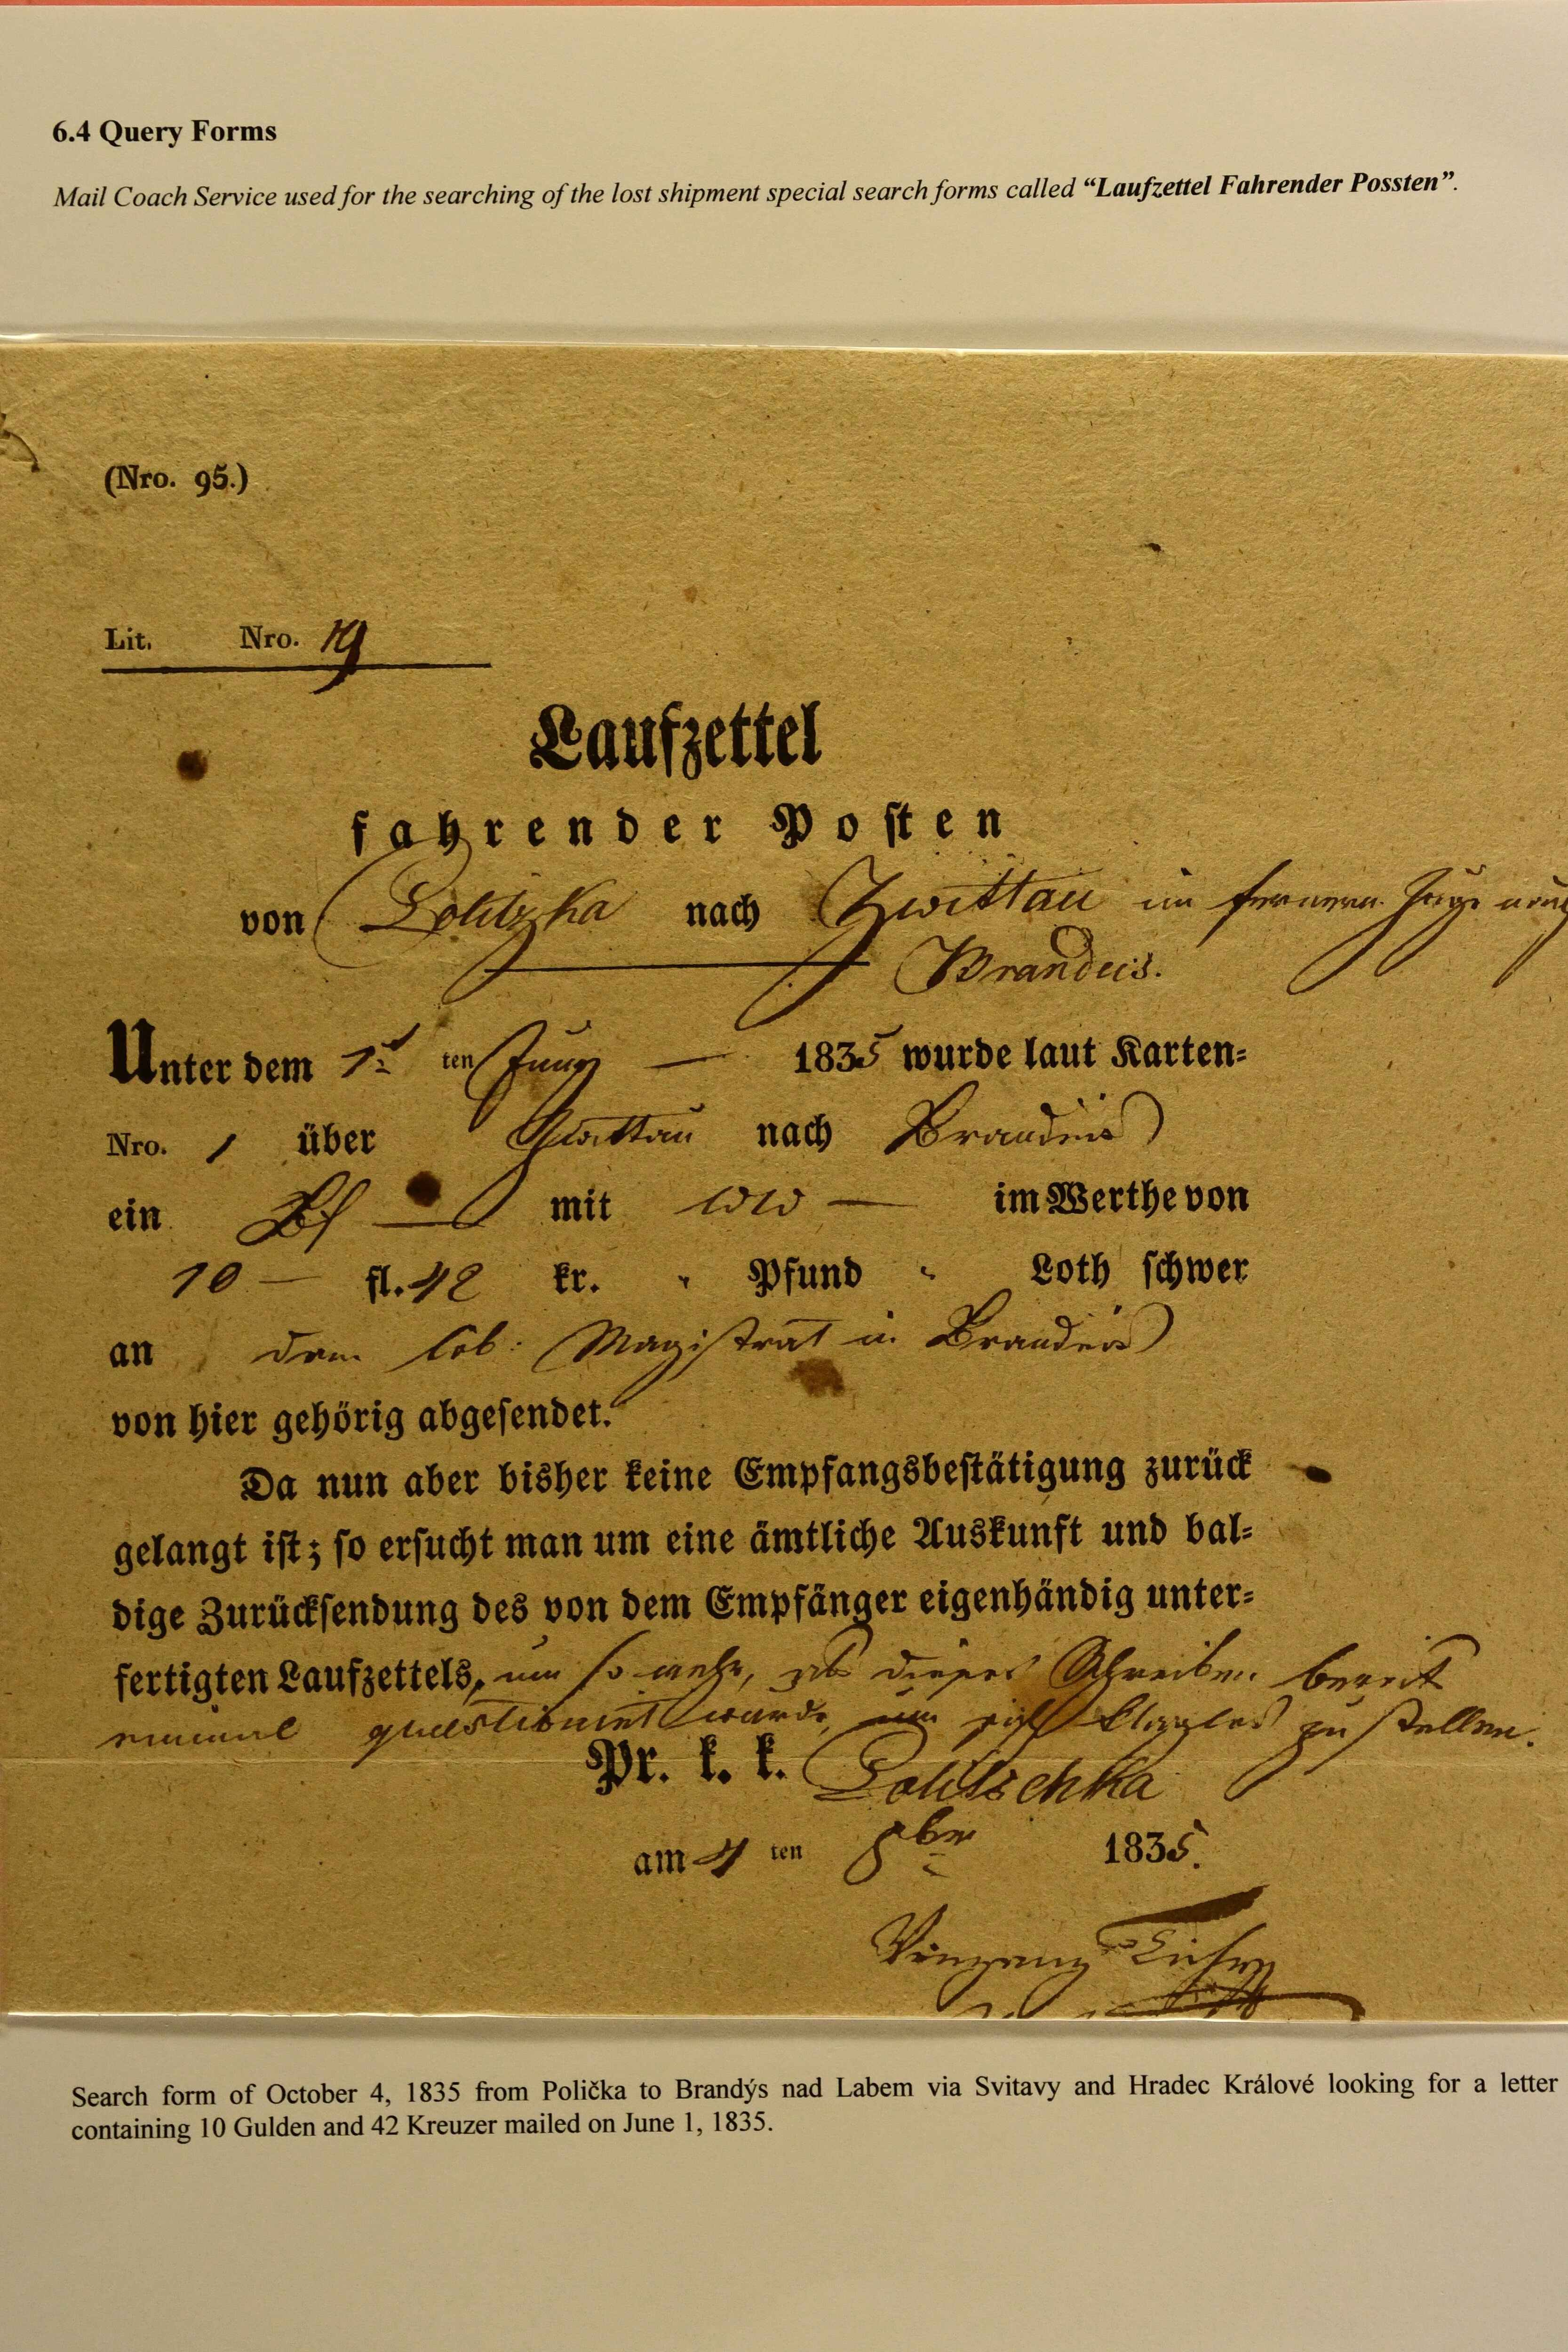 6.4 Query Forms
Mail Coach Service used for the searching of the lost shipment special search forms called “Laufzettel Fahrender Possten”.
(Nro. 95.)
Lit. Nro. 19
Laufzettel
fahrender Posten
von Politzka nach Zwittau im fernern Zuge nach
Brandeis.
Unter dem 1 ten Juny — 1835 wurde laut Karten-
Nro. 1 über Zwittau nach Brandeis
ein Bf — mit WW — im Werthe von
10 — fl. 42 kr. " Pfund " Loth schwer
an dem löb: Magistrat in Brandeis
von hier gehörig abgesendet.
Da nun aber bisher keine Empfangsbestätigung zurück
gelangt ist; so ersucht man um eine ämtliche Auskunft und bal-
dige Zurücksendung des von dem Empfänger eigenhändig unter-
fertigten Laufzettels, um so mehr, als dieses Schreiben bereit
einmal questionirt wurde, um sich zu stellen.
Pr. k. k. Politschka
am 4 ten 8ber 1835.
Vinzenz
Search form of October 4, 1835 from Polička to Brandýs nad Labem via Svitavy and Hradec Králové looking for a letter
containing 10 Gulden and 42 Kreuzer mailed on June 1, 1835.